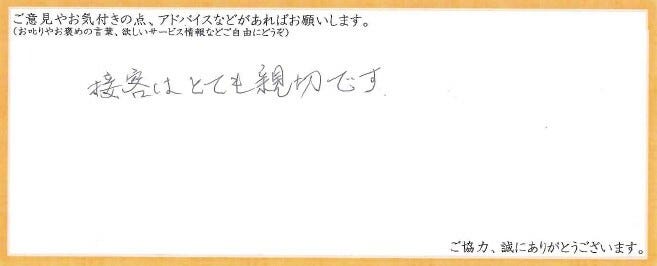 ご意見やお気付きの点、アドバイスなどがあればお願いします。
(お叱りやお褒めの言葉、欲しいサービス情報などご自由にどうぞ)
接客はとても親切です
ご協力、誠にありがとうございます。